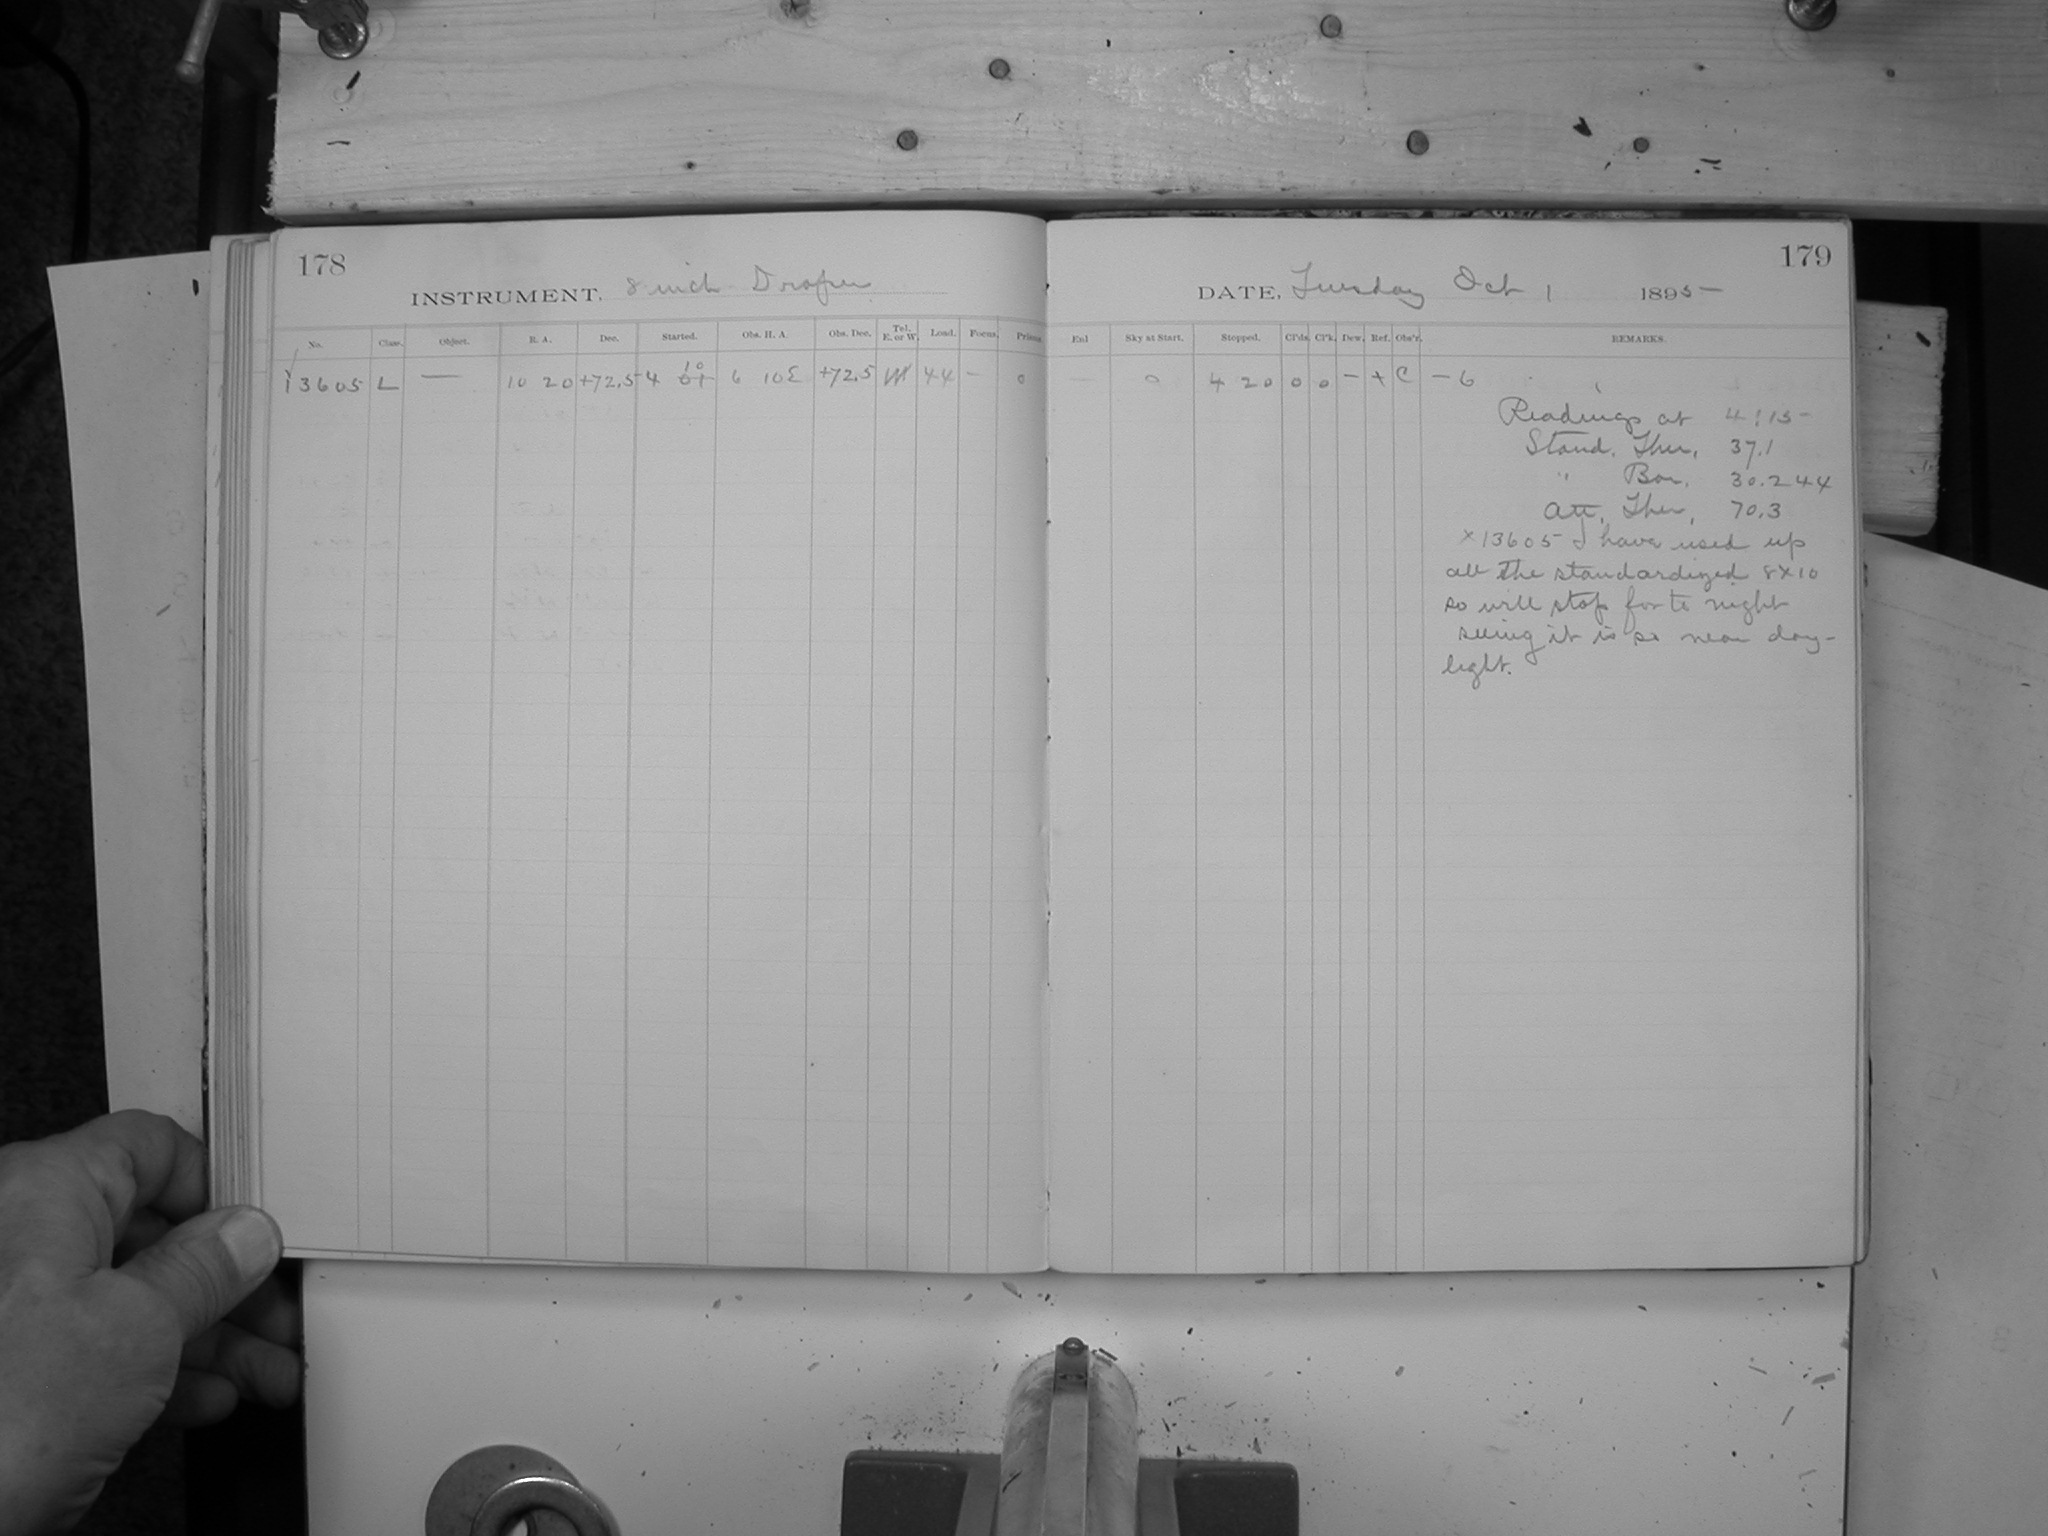 178
INSTRUMENT, 8 inch Draper
No. Class. Object. R. A. Dec. Started. Obs. H. A. Obs. Dec. Tel. E. or W. Load. Focus. Prisms
13605 L — 10 20 +72.5 4 10 6 10 E +72.5 W 44 – 0
179
DATE, Tuesday Oct 1 1895
Exl Sky at Start. Stopped. Cl'ds Cl'k. Dew. Ref. Obs'r. REMARKS.
0 4 20 0 0 – + C – 6
Readings at 4:15
Stand. Ther. 37.1
" Bar. 30.244
Att. Ther. 70.3
×13605 I have used up
all the standardized 8×10
so will stop for to night
seeing it is so near day-
light.